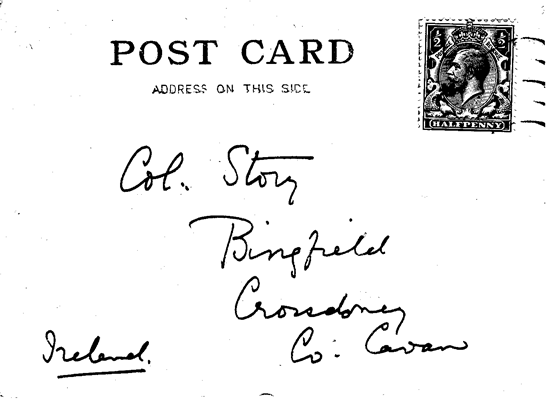 POST CARD
ADDRESS ON THIS SIDE
½ ½
HALFPENNY
Col. Story
Bingfield
Crossdoney
Co: Cavan
Ireland.